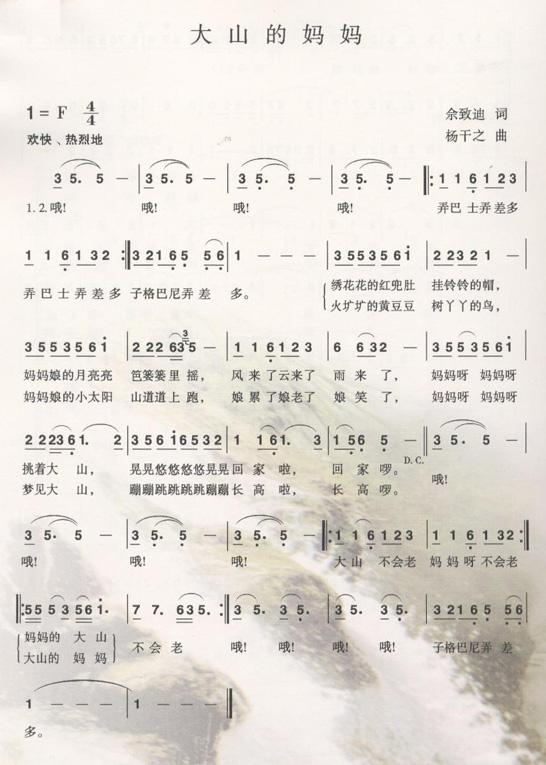 大山的妈妈
1=F 4/4
佘致迪 词
欢快、热烈地
杨干之 曲
3 5. 5 — | 3 5. 5 — | 3 5. 5 — | 3 5. 5 — |: 1 1 6 1 2 3 |
1.2.哦! 哦! 哦! 哦! 弄巴 士弄差多
1 1 6 1 3 2 :| 3 2 1 6 5 5 6 | 1 — — — | 3 5 5 3 5 6 i | 2 2 3 2 1 — |
弄巴士弄差多 子格巴尼弄差 多。 绣花花的红兜肚 挂铃铃的帽,
火圹圹的黄豆豆 树丫丫的鸟,
3 5 5 3 5 6 i | 2 2 2 6 3 3 5 — | 1 1 6 1 2 3 | 6 6 3 2 — | 3 5 5 3 5 6 i |
妈妈娘的月亮亮 笆篓篓里摇, 风来了云来了 雨来了, 妈妈呀 妈妈呀
妈妈娘的小太阳 山道道上跑, 娘累了娘老了 娘笑了, 妈妈呀 妈妈呀
2 2 2 3 6 1. 2 | 3 5 6 i 6 5 3 2 | 1 1 6 1. 3 | 1 5 6 5 — || 3 5. 5 — |
D.C.
挑着大山, 晃晃悠悠悠悠晃晃 回家啦, 回家啰。 哦!
梦见大山, 蹦蹦跳跳跳跳蹦蹦 长高啦, 长高啰。
3 5. 5 — | 3 5. 5 — | 3 5. 5 — |: 1 1 6 1 2 3 | 1 1 6 1 3 2 :|
哦! 哦! 哦! 大山 不会老 妈妈呀不会老
|: 5 5 5 3 5 6 i. | 7 7. 6 3 5. :| 3 5. 3 5. | 3 5. 3 5. | 3 2 1 6 5 5 6 |
妈妈的 大山 不会老 哦! 哦! 哦! 哦! 子格巴尼弄差
大山的 妈妈
1 — — — | 1 — — — ||
多。